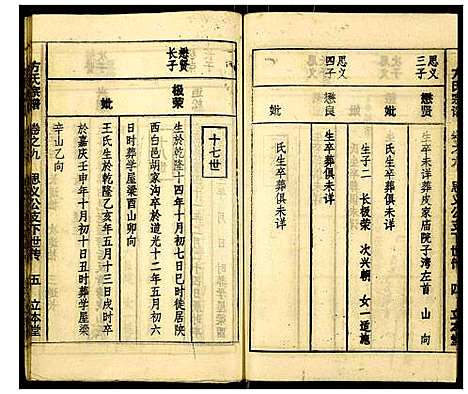 方氏宗谱
卷之九
思义公支下世传
四
立本堂
思义
三子
懋贤
生卒未详葬皮家庙院子湾左首 山 向
妣
氏生卒葬俱未详
生子二 长极荣 次兴朝 女一适施
思义
四子
懋良
生卒葬俱未详
妣
氏生卒葬俱未详
十七世
懋贤
长子
极荣
生於乾隆十四年十月初七日巳时徙居陕
西白邑胡家沟卒於道光十二年五月初六
日时葬学屋梁酉山卯向
妣
王氏生於乾隆乙亥年五月十三日戌时卒
於嘉庆壬申年十月初十日丑时葬学屋梁
辛山乙向
方氏宗谱
卷之九
思义公支下世传
五
立本堂